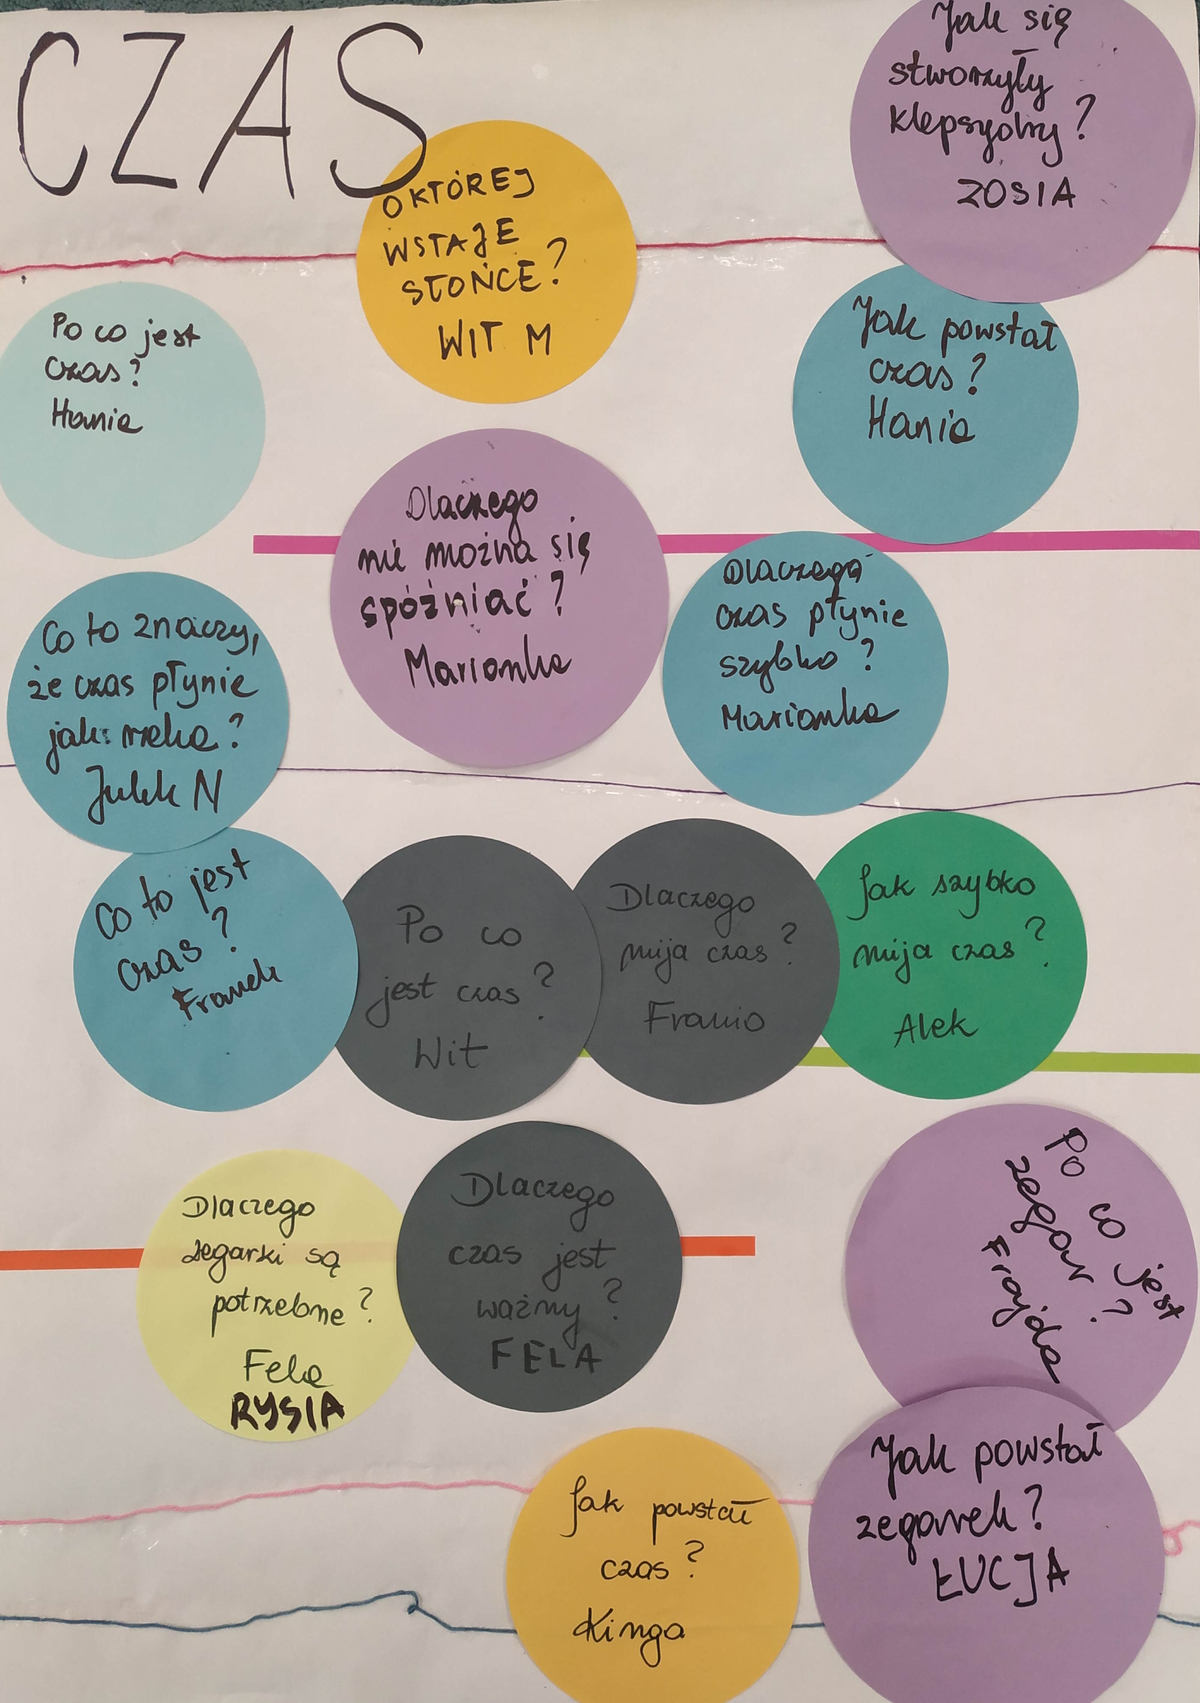 CZAS
Jak się
stworzyły
klepsydry?
ZOSIA
O KTÓREJ
WSTAJE
SŁOŃCE?
WIT M
Po co jest
czas?
Hania
Jak powstał
czas?
Hania
Dlaczego
nie można się
spóźniać?
Marianka
Dlaczego
czas płynie
szybko?
Marianka
Co to znaczy,
że czas płynie
jak rzeka?
Julek N
Co to jest
czas?
Franek
Po co
jest czas?
Wit
Dlaczego
mija czas?
Franio
Jak szybko
mija czas?
Alek
Dlaczego
zegarki są
potrzebne?
Fela
RYSIA
Dlaczego
czas jest
ważny?
FELA
Po co jest
zegar?
Frajda
Jak powstał
czas?
Kinga
Jak powstał
zegarek?
ŁUCJA